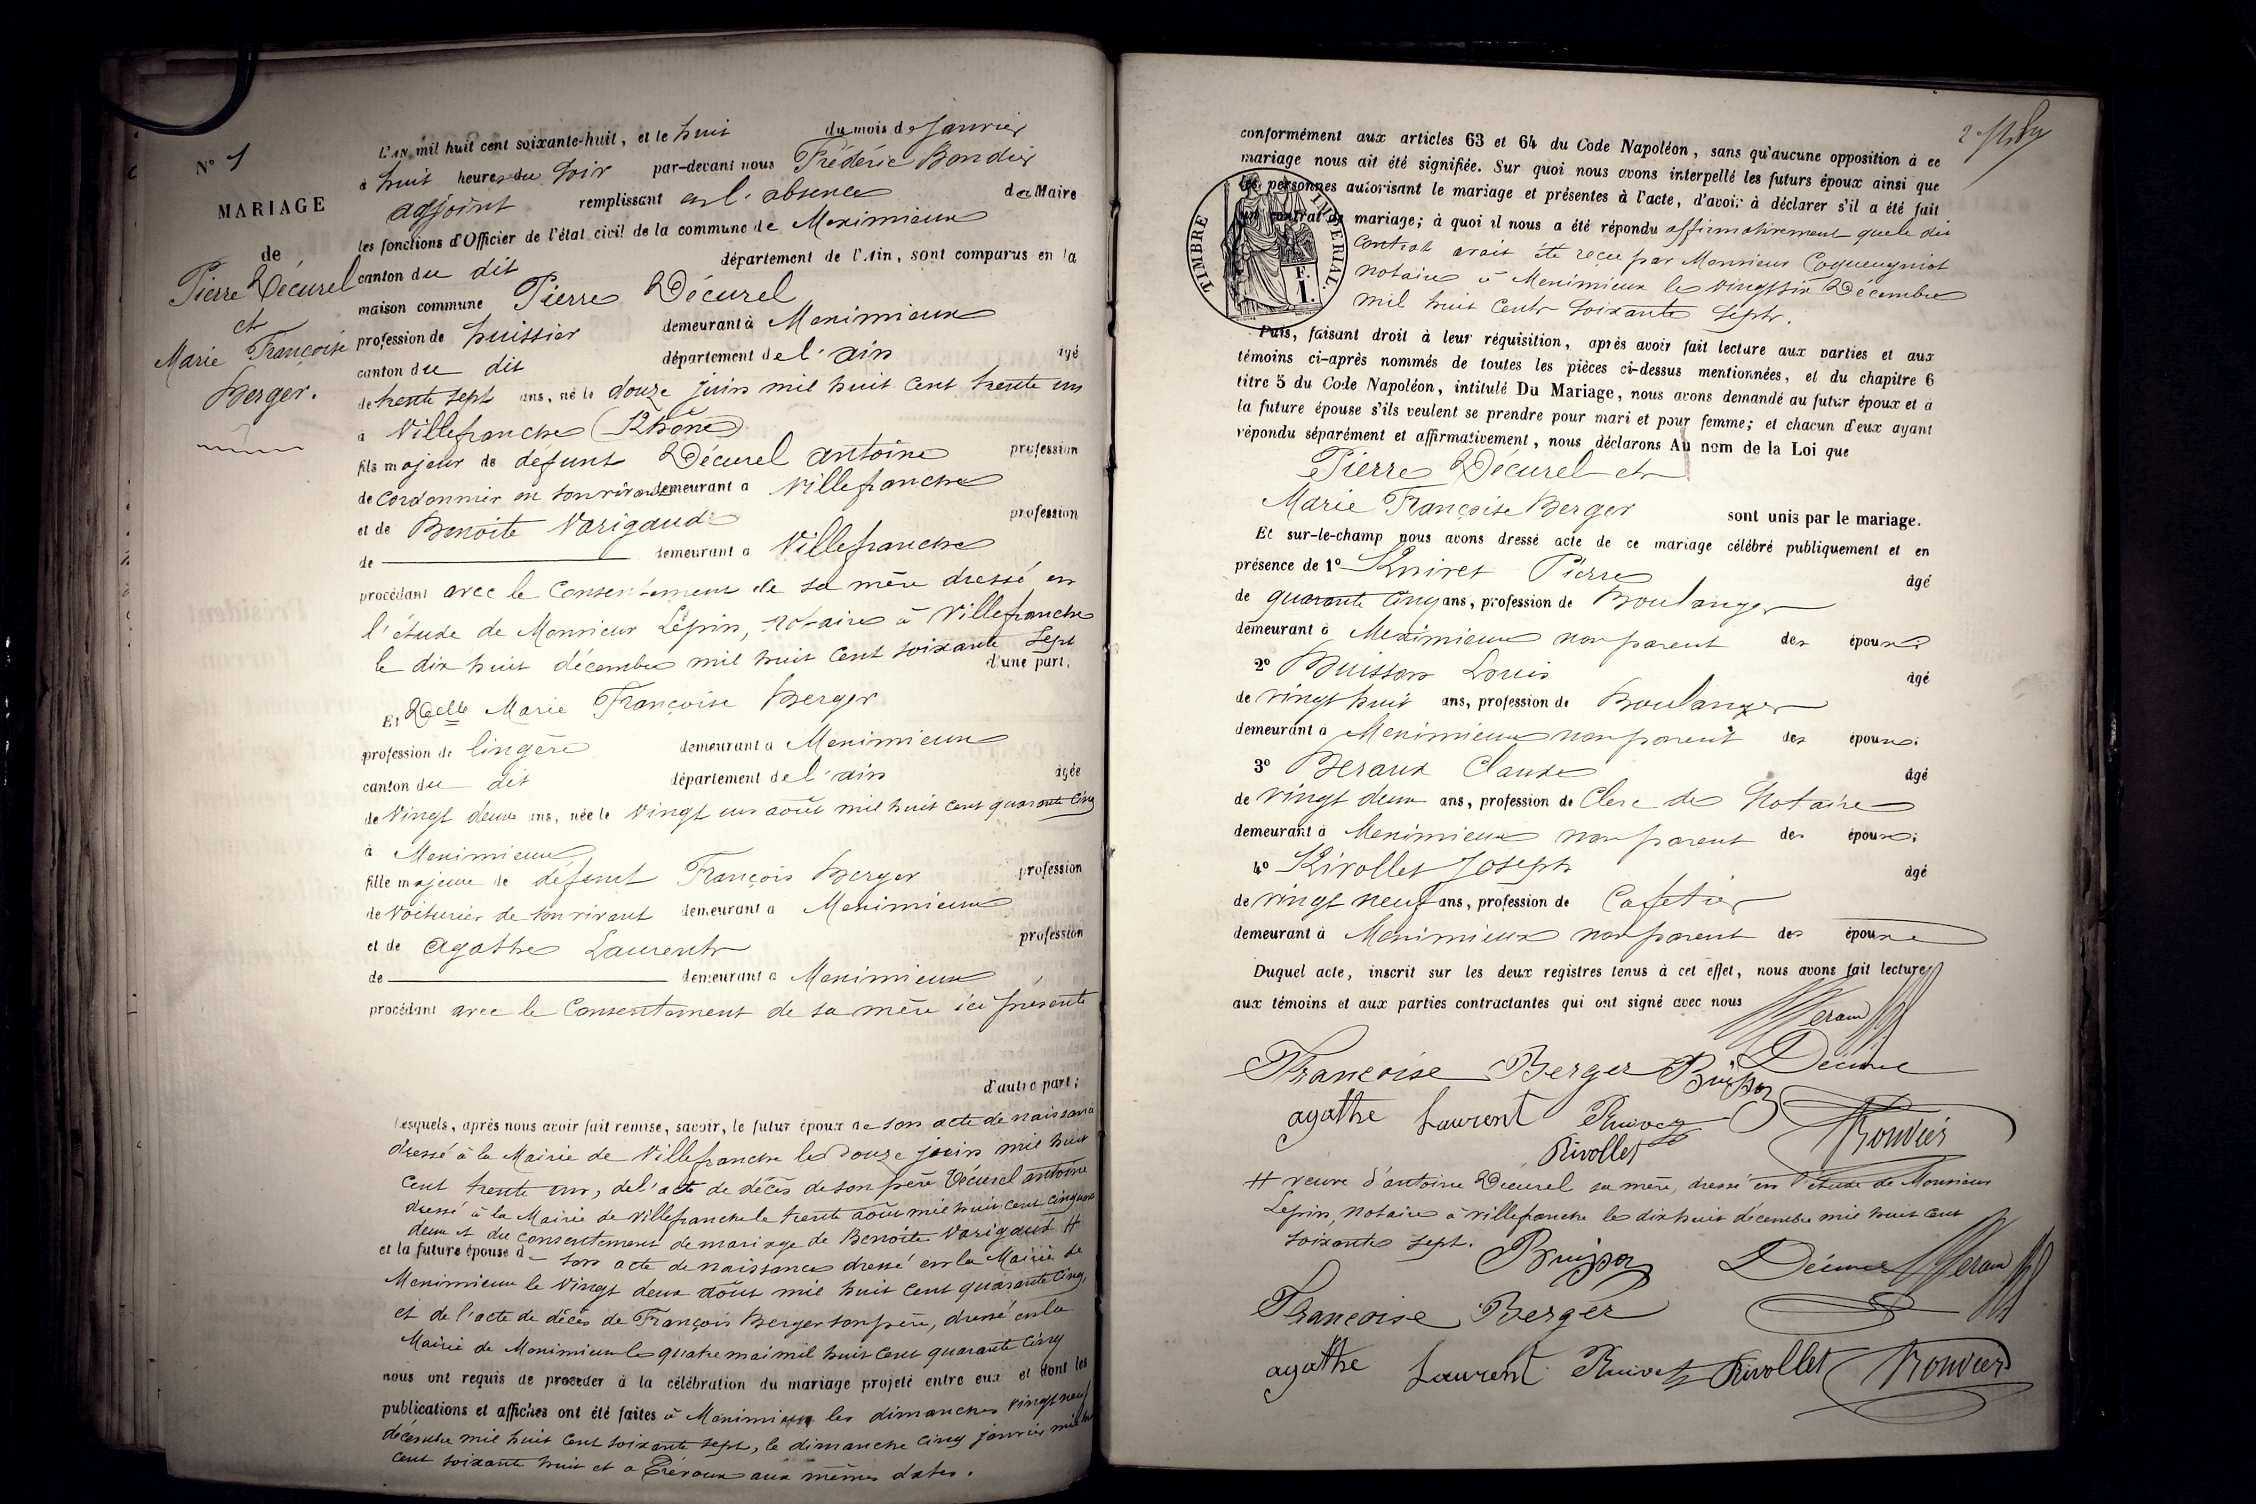 N° 1
MARIAGE
de
Pierre Décurel
et
Marie Françoise
Berger.
L'AN mil huit cent soixante-huit, et le huit du mois de Janvier
à huit heures du Soir par-devant nous Frédéric
adjoint remplissant en l'absence du Maire
les fonctions d'Officier de l'état civil de la commune de Meximieux
canton du dit département de l'Ain, sont comparus en la
maison commune Pierre Décurel
profession de huissier demeurant à Meximieux
canton du dit département de l'ain âgé
de trente sept ans, né le douze juin mil huit cent trente un
à Villefranche (Rhône)
fils majeur de defunt Décurel antoine profession
de cordonnier en son vivant demeurant à Villefranche
et de Benoite Varigaud profession
de demeurant à Villefranche
procédant avec le Consentement de sa mère dressé en
l'étude de Monsieur Lépin, notaire à Villefranche
le dix huit décembre mil huit cent soixante sept
d'une part;
Et Delle Marie Françoise Berger
profession de lingère demeurant à Meximieux
canton du dit département de l'ain âgée
de Vingt deux ans, née le Vingt un août mil huit cent quarante cinq
à Meximieux
fille majeure de défunt François Berger profession
de Voiturier de son vivant demeurant à Meximieux
et de agathe Laurent profession
de demeurant à Meximieux
procédant avec le Consentement de sa mère ici présente
d'autre part;
Lesquels, après nous avoir fait remise, savoir, le futur époux de son acte de naissance
dressé à la Mairie de Villefranche le Douze juin mil huit
cent trente un, de l'acte de décès de son père Décurel antoine
dressé à la Mairie de Villefranche le trente août mil huit cent cinquante
deux et du consentement de mariage de Benoite Varigaud #
et la future épouse de son acte de naissance dressé en la Mairie de
Meximieux le Vingt deux août mil huit cent quarante cinq,
et de l'acte de décès de François Berger son père, dressé en la
Mairie de Meximieux le quatre mai mil huit cent quarante cinq
nous ont requis de procéder à la célébration du mariage projeté entre eux et dont les
publications et affiches ont été faites à Meximieux les dimanches vingt neuf
décembre mil huit cent soixante sept, le dimanche cinq janvier mil huit
cent soixante huit et à Trévoux aux mêmes dates.
conformément aux articles 63 et 64 du Code Napoléon, sans qu'aucune opposition à ce
mariage nous ait été signifiée. Sur quoi nous avons interpellé les futurs époux ainsi que
les personnes autorisant le mariage et présentes à l'acte, d'avoir à déclarer s'il a été fait
un contrat de mariage; à quoi il nous a été répondu affirmativement que le dit
contrat avait été reçu par Monsieur
notaire à Meximieux le vingt six Décembre
mil huit cent soixante sept.
TIMBRE IMPERIAL.
F.
1.
Puis, faisant droit à leur réquisition, après avoir fait lecture aux parties et aux
témoins ci-après nommés de toutes les pièces ci-dessus mentionnées, et du chapitre 6
titre 5 du Code Napoléon, intitulé Du Mariage, nous avons demandé au futur époux et à
la future épouse s'ils veulent se prendre pour mari et pour femme; et chacun d'eux ayant
répondu séparément et affirmativement, nous déclarons Au nom de la Loi que
Pierre Décurel et
Marie Françoise Berger sont unis par le mariage.
Et sur-le-champ nous avons dressé acte de ce mariage célébré publiquement et en
présence de 1° Pierre âgé
de quarante cinq ans, profession de Boulanger
demeurant à Meximieux non parent des époux;
2° Buisson Louis âgé
de vingt huit ans, profession de Boulanger
demeurant à Meximieux non parent des époux;
3° Beraud Claude âgé
de vingt deux ans, profession de Clerc de Notaire
demeurant à Meximieux non parent des époux;
4° Rivollet Joseph âgé
de vingt neuf ans, profession de Cafetier
demeurant à Meximieux non parent des époux
Duquel acte, inscrit sur les deux registres tenus à cet effet, nous avons fait lecture
aux témoins et aux parties contractantes qui ont signé avec nous
Francoise Berger
agathe Laurent
Rivollet
# veuve d'antoine Décurel sa mère, dressé en l'étude de Monsieur
Lépin, notaire à Villefranche le dix huit décembre mil huit cent
soixante sept.
Francoise Berger
agathe Laurent Rivollet